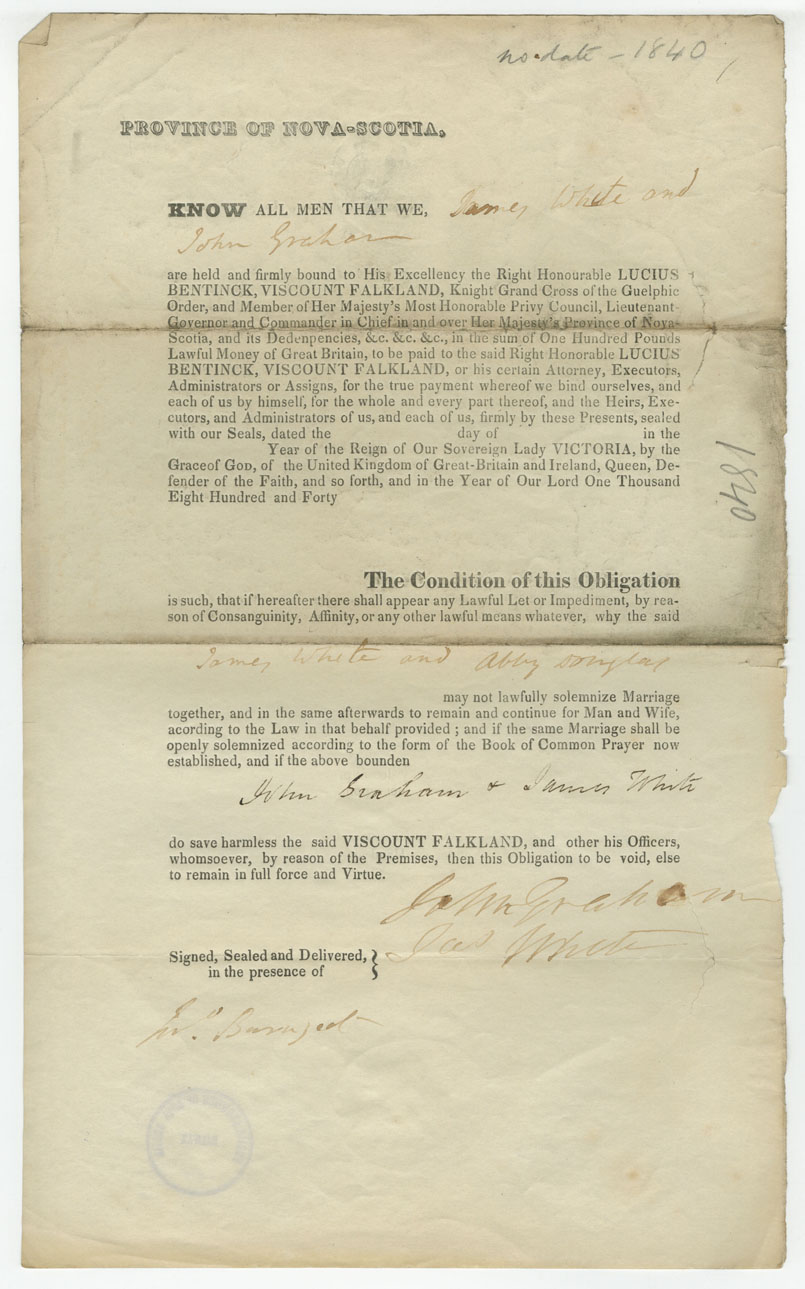 no date - 1840
PROVINCE OF NOVA-SCOTIA,
KNOW ALL MEN THAT WE, James White and
John Graham
are held and firmly bound to His Excellency the Right Honourable LUCIUS
BENTINCK, VISCOUNT FALKLAND, Knight Grand Cross of the Guelphic
Order, and Member of Her Majesty's Most Honorable Privy Council, Lieutenant-
Governor and Commander in Chief in and over Her Majesty's Province of Nova-
Scotia, and its Dedenpencies, &c. &c. &c., in the sum of One Hundred Pounds
Lawful Money of Great Britain, to be paid to the said Right Honorable LUCIUS
BENTINCK, VISCOUNT FALKLAND, or his certain Attorney, Executors,
Administrators or Assigns, for the true payment whereof we bind ourselves, and
each of us by himself, for the whole and every part thereof, and the Heirs, Exe-
cutors, and Administrators of us, and each of us, firmly by these Presents, sealed
with our Seals, dated the day of in the
Year of the Reign of Our Sovereign Lady VICTORIA, by the
Graceof GOD, of the United Kingdom of Great-Britain and Ireland, Queen, De-
fender of the Faith, and so forth, and in the Year of Our Lord One Thousand
Eight Hundred and Forty
1840
The Condition of this Obligation
is such, that if hereafter there shall appear any Lawful Let or Impediment, by rea-
son of Consanguinity, Affinity, or any other lawful means whatever, why the said
James White and Abby Douglas
may not lawfully solemnize Marriage
together, and in the same afterwards to remain and continue for Man and Wife,
acording to the Law in that behalf provided ; and if the same Marriage shall be
openly solemnized according to the form of the Book of Common Prayer now
established, and if the above bounden
John Graham & James White
do save harmless the said VISCOUNT FALKLAND, and other his Officers,
whomsoever, by reason of the Premises, then this Obligation to be void, else
to remain in full force and Virtue.
John Graham
Jas White
Signed, Sealed and Delivered,
in the presence of